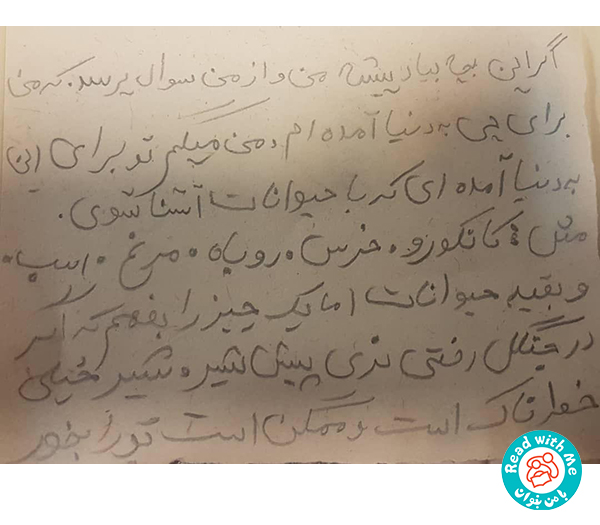 اگر این بچه بیاد پیشه من و از من سوال پرسد. که من
برای چی به دنیا آمده ام، من میگم تو برای این
به دنیا آمده ای که با حیوانات آشنا شوی.
مثل: کانگورو، خرس، روباه، مرغ، اسب،
و بقیه حیوانات اما یک چیز را بفهم که اگر
در جنگل رفتی نری پیش شیر، شیر خیلی
خطرناک است و ممکن است تو را بخور
Read with Me
با من بخوان